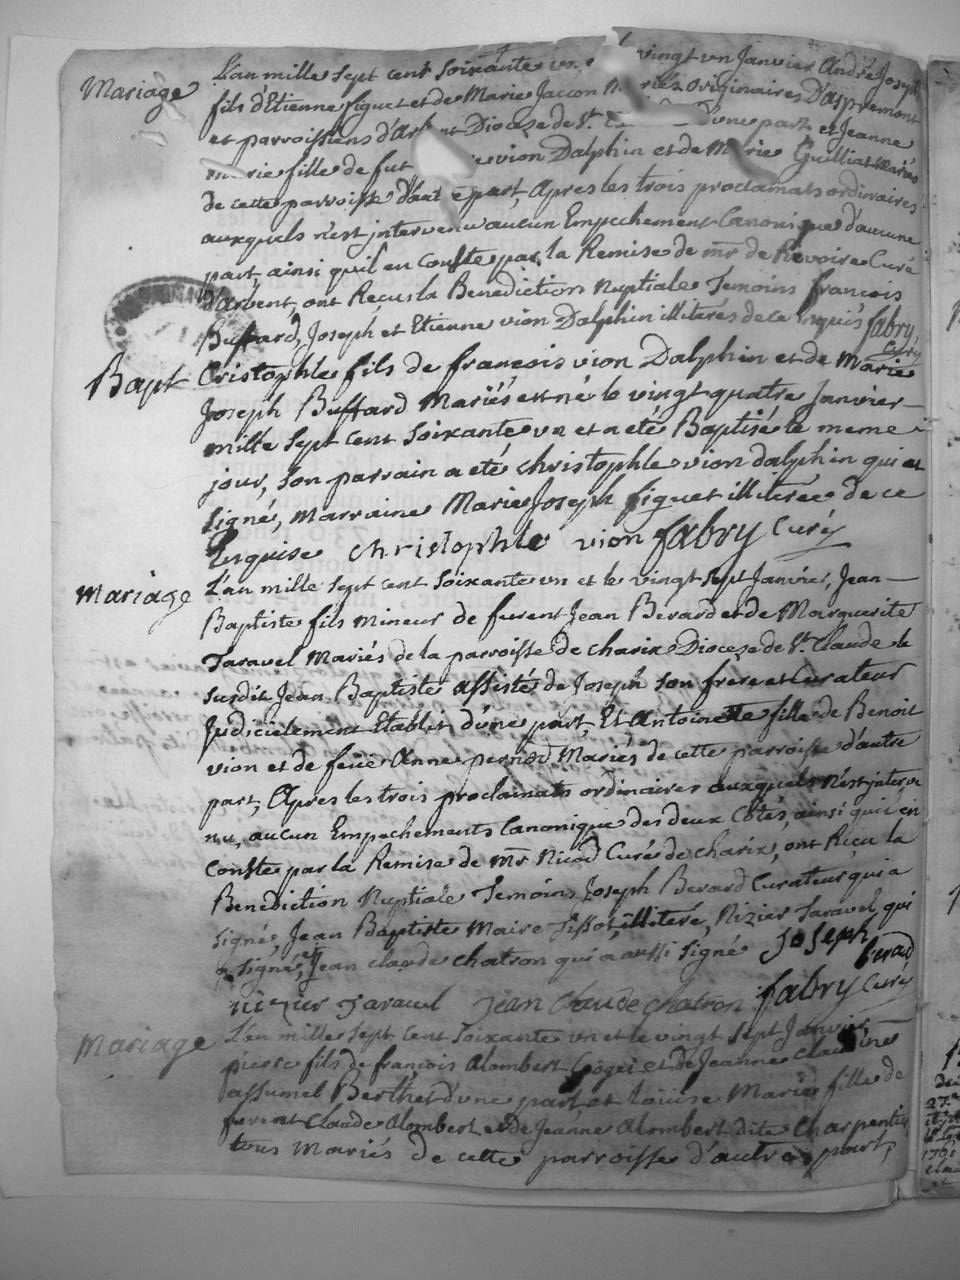 Mariage
L'an mille sept cent soixante un vingt un Janvier André Joseph
fils d'Etienne figuet et de Marie Jaccon Mariés originaires D'aspremont
et parroissiens d'Arbent Dioceze de St. d'une part et Jeanne
Marie fille de fut vion Dalphin et de Marie Guilliat Mariés
de cette parroisse d'autre part, Apres les trois proclamats ordinaires
auxquels n'est intervenu aucun Empechement Canonique d'aucune
part, ainsi qu'il en Conste par la Remise de mr de Revoire Curé
d'arbent, ont Reçu la Benediction Nuptiale Temoins françois
Buffard, Joseph et Etienne vion Dalphin illiterés de ce enquis fabry
Curé
Bapt
Cristophle fils de françois vion Dalphin et de Marie
Joseph Buffard Mariés est né le vingt quatre Janvier
mille sept cent soixante un et a été Baptisé le meme
jour, son parrain a été christophle vion dalphin qui a
signé, marraine Marie Joseph figuet illiterée de ce
enquise christophle vion fabry Curé
Mariage
L'an mille sept cent soixante un et le vingt sept Janvier, Jean
Baptiste fils mineur de furent Jean Berard et de Marguerite
Taravel Mariés de la parroisse de charix Dioceze de St. Claude le
susdit Jean Baptiste assisté de Joseph son frere et Curateur
Judicielement Etablit d'une part, Et Antoinette fille de Benoit
vion et de feüe Anne pernod Mariés de cette parroisse d'autre
part, Apres les trois proclamats ordinaires auxquels n'est interve
nu, aucun Empechements Canonique des deux Côtés, ainsi qui en
Conste par la Remise de Mr Nicod Curé de charix, ont Reçu la
Benediction Nuptiale Temoins Joseph Berard Curateur qui a
signé, Jean Baptiste Maire Tissot illiteré, Nizier Taravel qui
a signé, et Jean claude chatron qui a aussi signé Joseph
berad
niczier Taravel Jean Claude Chatron fabry Curé
Mariage
L'an mille sept cent soixante un et le vingt sept Janvier
pierre fils de françois Alombert Gôget et de Jeanne Claudine
assumel Berthet d'une part et Loüise Marie fille de
furent Claude Alombert et de Jeanne Alombert dite Charpentier
tous Mariés de cette parroisse d'autre part,